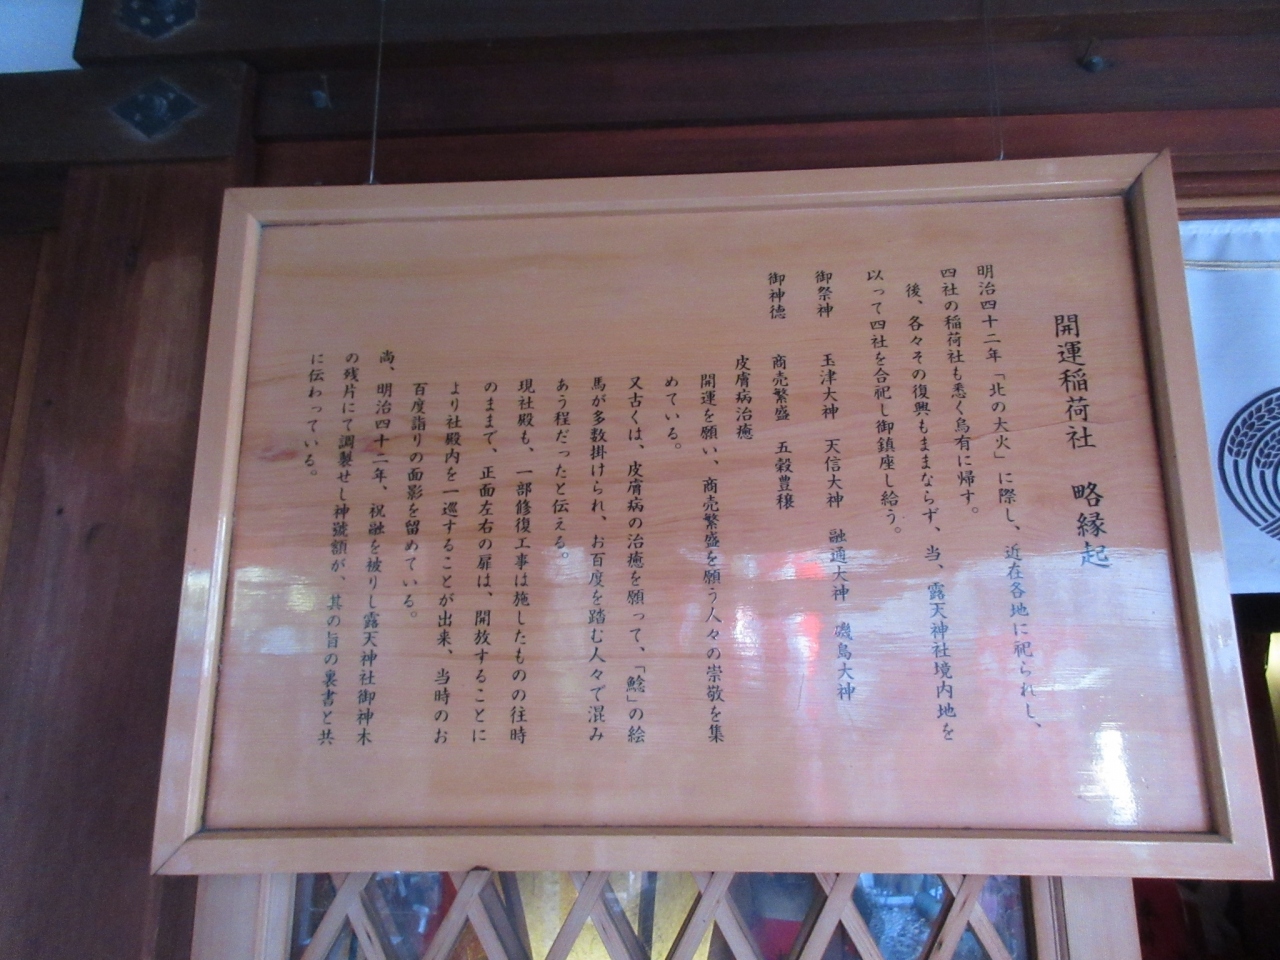 開運稲荷社 略縁起
明治四十二年「北の大火」に際し、近在各地に祀られし、
四社の稲荷社も悉く烏有に帰す。
後、各々その復興もままならず、当、露天神社境内地を
以って四社を合祀し御鎮座し給う。
御祭神 玉津大神 天信大神 融通大神 磯島大神
御神徳 商売繁盛 五穀豊穣
皮膚病治癒
開運を願い、商売繁盛を願う人々の崇敬を集
めている。
又古くは、皮膚病の治癒を願って、「鯰」の絵
馬が多数掛けられ、お百度を踏む人々で混み
あう程だったと伝える。
現社殿も、一部修復工事は施したものの往時
のままで、正面左右の扉は、開放することに
より社殿内を一巡することが出来、当時のお
百度詣りの面影を留めている。
尚、明治四十二年、祝融を被りし露天神社御神木
の残片にて調製せし神號額が、其の旨の裏書と共
に伝わっている。